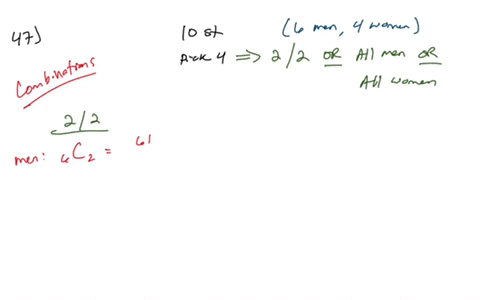 47)
10 st (6 men, 4 women)
Pick 4 ⇒ 2/2 OR All men OR
All women
Combinations
2/2
men: ₆C₂ = 6!